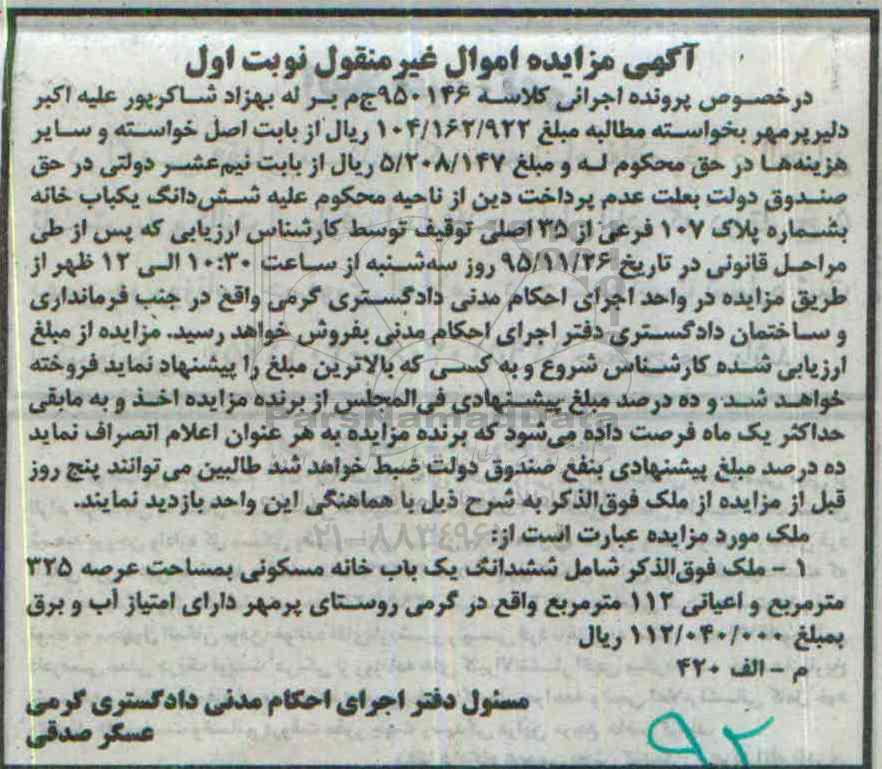 آگهی مزایده اموال غیرمنقول نوبت اول
درخصوص پرونده اجرائی کلاسه ۹۵۰۱۴۶ج‌م بر له بهزاد شاکرپور علیه اکبر
دلیرپرمهر بخواسته مطالبه مبلغ ۱۰۴/۱۶۲/۹۲۲ ریال از بابت اصل خواسته و سایر
هزینه‌ها در حق محکوم له و مبلغ ۵/۲۰۸/۱۴۷ ریال از بابت نیم‌عشر دولتی در حق
صندوق دولت بعلت عدم پرداخت دین از ناحیه محکوم علیه شش‌دانگ یکباب خانه
بشماره پلاک ۱۰۷ فرعی از ۳۵ اصلی توقیف توسط کارشناس ارزیابی که پس از طی
مراحل قانونی در تاریخ ۹۵/۱۱/۲۶ روز سه‌شنبه از ساعت ۱۰:۳۰ الی ۱۲ ظهر از
طریق مزایده در واحد اجرای احکام مدنی دادگستری گرمی واقع در جنب فرمانداری
و ساختمان دادگستری دفتر اجرای احکام مدنی بفروش خواهد رسید. مزایده از مبلغ
ارزیابی شده کارشناس شروع و به کسی که بالاترین مبلغ را پیشنهاد نماید فروخته
خواهد شد و ده درصد مبلغ پیشنهادی فی‌المجلس از برنده مزایده اخذ و به مابقی
حداکثر یک ماه فرصت داده می‌شود که برنده مزایده به هر عنوان اعلام انصراف نماید
ده درصد مبلغ پیشنهادی بنفع صندوق دولت ضبط خواهد شد طالبین می‌توانند پنج روز
قبل از مزایده از ملک فوق‌الذکر به شرح ذیل با هماهنگی این واحد بازدید نمایند.
ملک مورد مزایده عبارت است از:
۱ - ملک فوق‌الذکر شامل ششدانگ یک باب خانه مسکونی بمساحت عرصه ۳۲۵
مترمربع و اعیانی ۱۱۲ مترمربع واقع در گرمی روستای پرمهر دارای امتیاز آب و برق
بمبلغ ۱۱۲/۰۴۰/۰۰۰ ریال
م - الف ۴۲۰
مسئول دفتر اجرای احکام مدنی دادگستری گرمی
عسگر صدقی
۹۲
ParsNamadData